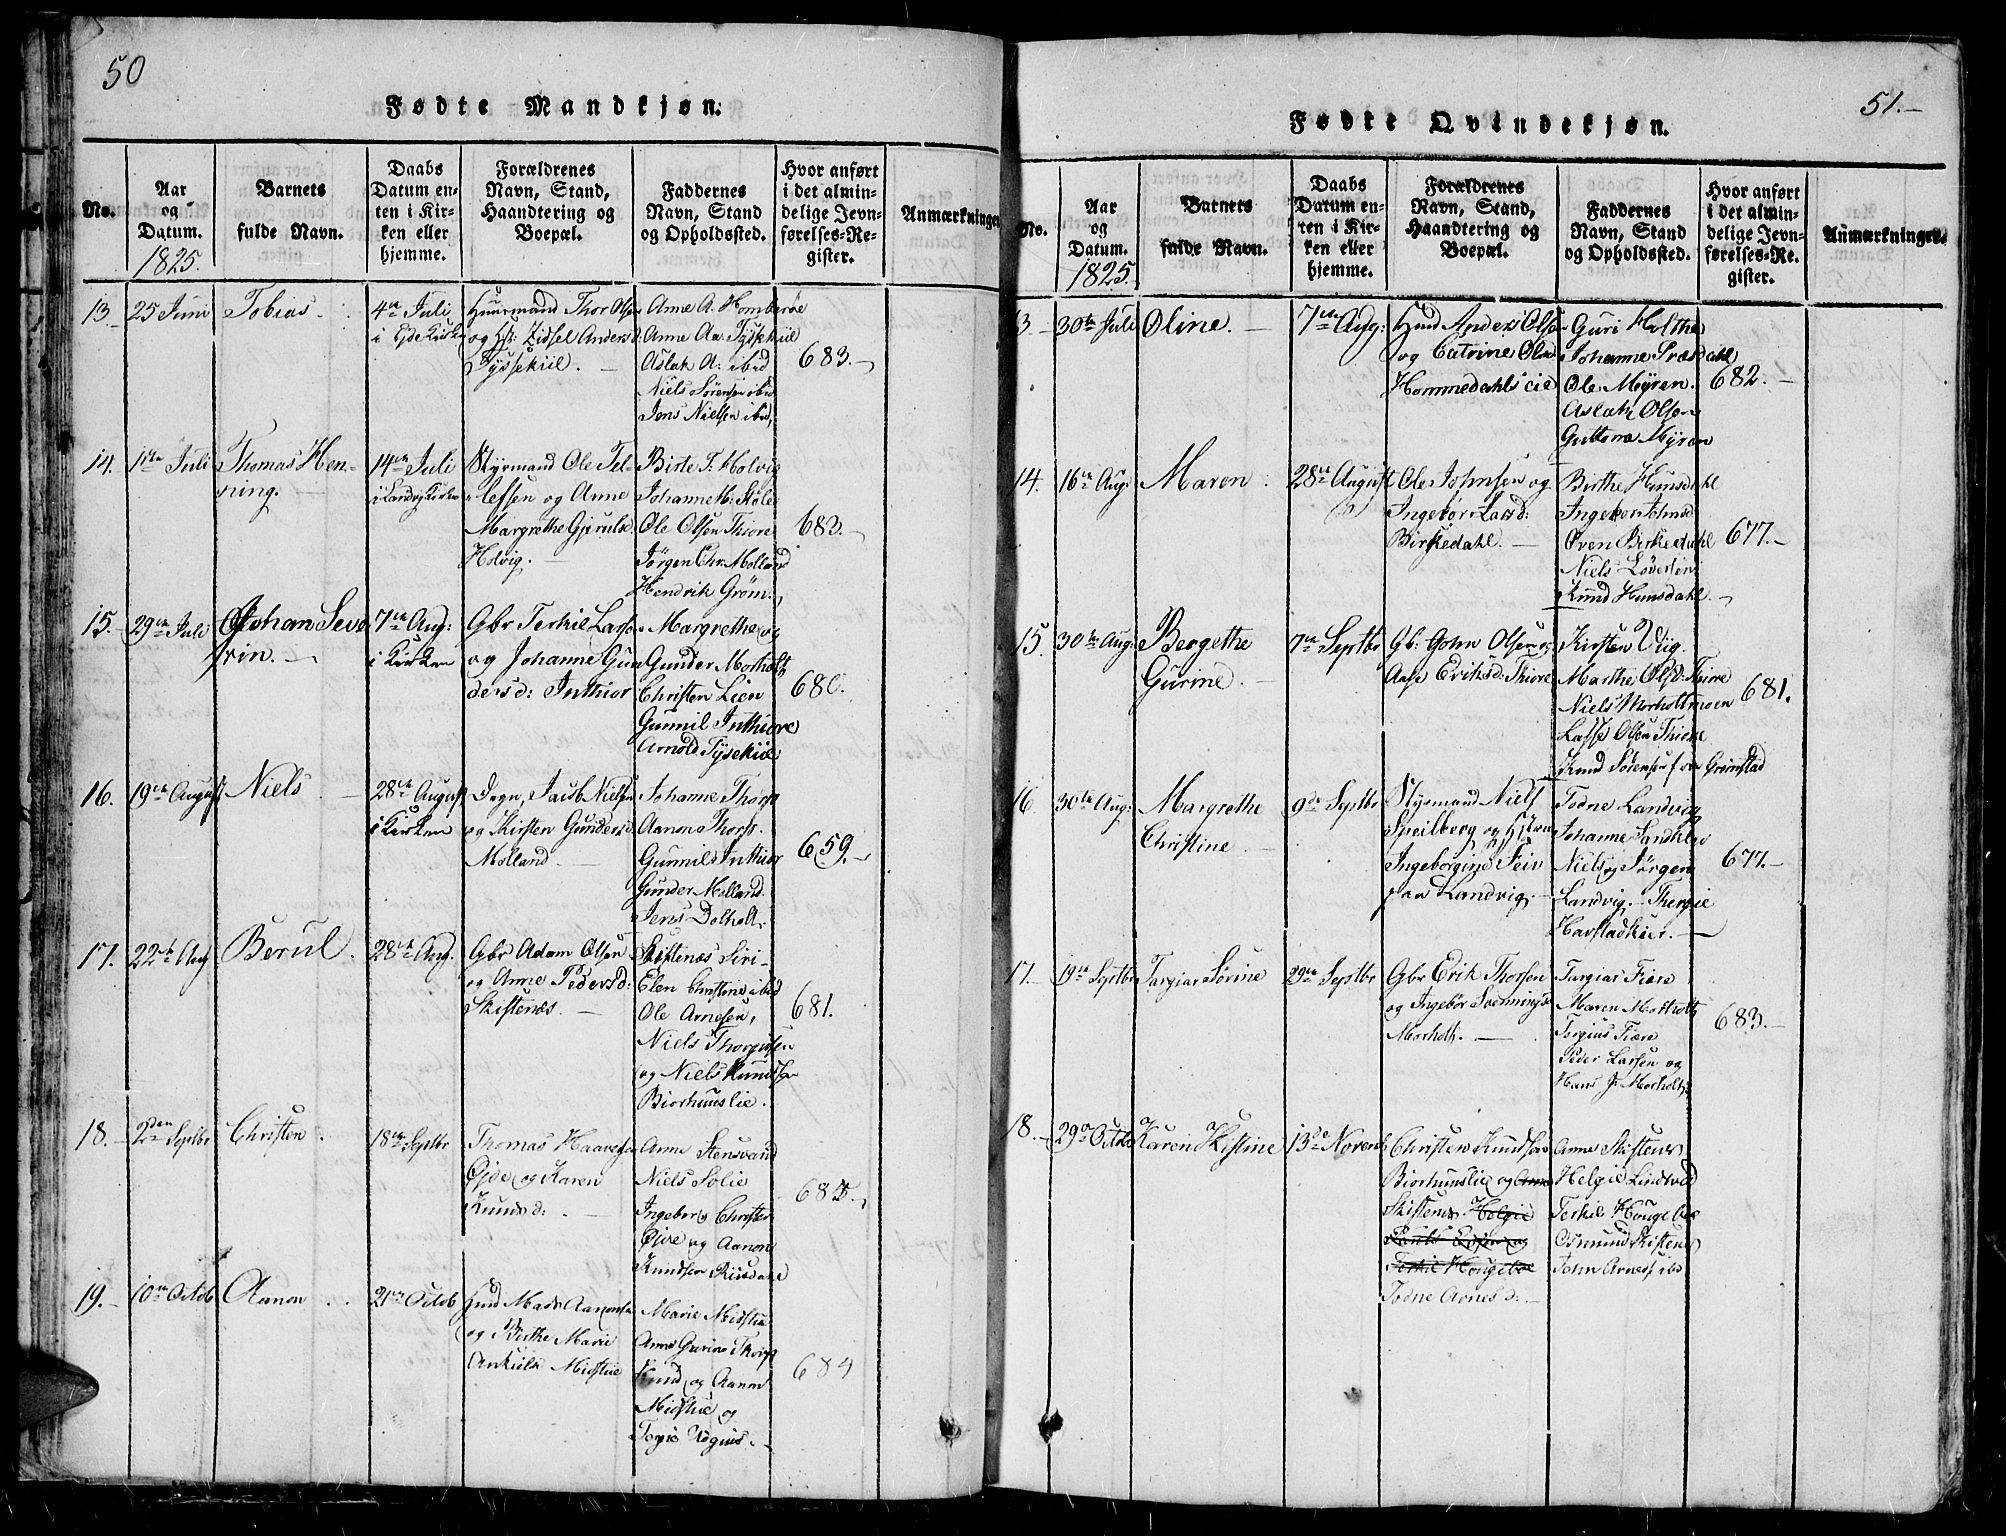 50
Fødte Mandkjøn.
No.
Aar
og
Datum.
1825.
Barnets
fulde Navn.
Daabs
Datum en-
ten i Kir-
ken eller
hjemme.
Forældrenes
Navn, Stand,
Haandtering og
Boepæl.
Faddernes
Navn, Stand
og Opholdssted.
Hvor anført
i det almin-
delige Jevn-
førelses-Re-
gister.
Anmærkninger
13.
25 Juni
Tobias
4de Juli
i Eide Kirken
Huusmand Thor Olsen
og Zidsel Andersd:
Tyssekiil.
Anne A. Homborøe
Anne Aa: Tyssekiil
Aslak A: ibid
Niels Sørensen ibid
Jens Nielsen ibid,
683.
14.
1ste Juli
Thomas Hen-
ning.
14de Juli
i Landvig Kirke
Styrmand Ole Tel-
lefsen og Anne
Margrethe Gjeruls
Holvig.
Birte T: Holvig
Johanne M: Støle
Ole Olsen Thiore
Jørgen Chr. Molland
Hendrik Grøm:
683.
15.
29de Juli
Johan Seve-
rin.
7de Aug:
i Kirken
Gbr Terkil Larsen
og Johanne Gun
dersd: Inthior
Margrethe og
Gunder Morholt
Christen Lien
Gunnil Inthiore
Arnold Tysekiil
680.
16.
19de August
Niels
28de August
i Kirken
Degn, Jacob Nielsen
og Kirsten Gundersd
Molland.
Johanne Thorp
Aanon Thorp.
Gunnild Inthior
Gunder Molland
Jens Dolholt.
659.
17.
22de Aug
Berul.
28de Aug.
Gbr Adam Olsen
og Anne Pedersd:
Skiftenæs.
Skiftenæs Siri
Elen Christine ibid
Ole Arnesen,
Niels Thorgusen
og Niels Knudsen
Biorhuuslie.
681.
18.
2den Septbr
Christen.
18de Septbr
Thomas Haavesen
Øjde og Karen
Knudsd:
Anne Stensvand
Niels Solie
Ingebor Christen
Øjde og Aanon
Knudsen Riisdahl
19.
10de Octob
Aanon
21de Octob
Huusd Mads Aanonsen
og Birthe Marie
Miøstue
Marie Midstue
Anne Gurine
Knud og Aanon
Midstue og
684
51.
Fødte Qvindekjøn.
No.
Aar
og
Datum.
1825.
Barnets
fulde Navn.
Daabs
Datum en-
ten i Kir-
ken eller
hjemme.
Forældrenes
Navn, Stand,
Haandtering og
Boepæl.
Faddernes
Navn, Stand
og Opholdssted.
Hvor anført
i det almin-
delige Jevn-
førelses-Re-
gister.
Anmærkninger.
13
30te Juli
Oline.
7de Aug:
Huusd Anders Olsen
og Catrine Olsd
Hommedahls eie
Guri Holthe
Johanne Træsdahl
Ole Myren.
Aslak Olsen
Guttorm Myren
682.
14.
16de Aug:
Maren
28de August
Ole Johnsen og
Ingebor Larsd:
Birkedahl.
Birthe Hunsdahl
Ingebor Johnsd
Even Birkedahl
Niels
Knud Hunsdahl.
677.
15.
30te Aug:
Bergethe
Gurine.
7de Septbr
Gb: John Olsen og
Aase Eriksd: Thiore
Kirsten Viig.
Marthe Olsd: Thiore
Niels Morholtmoen
Lasse Olsen Thiore
Knud Sørensen fra Grimstad
681.
16
30te Aug:
Margrethe
Christine
9de Septbr
Styrmand Niels
Speilberg og Hstru
Ingeborgine Fein
paa Landvig.
Todne Landvig
Johanne Sandklev
Niels og Jørgen
Landvig. Thergie
Havstadkier.
677.
17.
19de Septbr
Targiar Sørine
29de Septbr
Gbr Erik Thorsen
og Ingebor Svenningsd
Morholt.
Targiar Fiære
Maren Morholt
Torgius Fiære
Peder Larsen og
Hans J. Morholt
683.
18.
29de Octob
Karen Kistine
13de Novemb
Christen Knudsen
Biorhuuslie og Anne
Skiftenes. Helgie
Terkil Hougeboe
Todne Arnesd:
Anne Skiftenes
Helgie Lindtved
Terkil Hougeboe
Osmund Skiftenes
John Arnes ibd